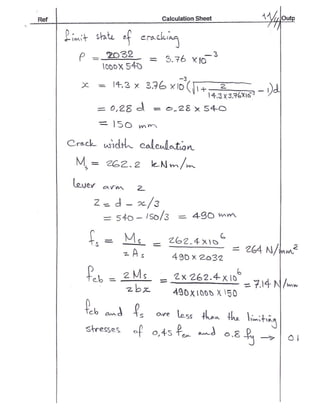 Ref Calculation Sheet 11/11 Outp
Limit state of cracking
ρ = 2032 / 1000 x 540 = 3.76 x 10⁻³
x = 14.3 x 3.76 x 10⁻³ (√1 + 2 / 14.3 x 3.76x10⁻³ - 1)d
= 0.28 d = 0.28 x 540
= 150 mm
Crack width calculation
Ms = 262.2 kNm/m
lever arm z
z = d - x/3
= 540 - 150/3 = 490 mm
fs = Ms / z As = 262.4 x 10⁶ / 490 x 2032 = 264 N/mm²
fcb = 2 Ms / z b x = 2 x 262.4 x 10⁶ / 490 x 1000 x 150 = 7.14 N/mm
fcb and fs are less than the limiting
stresses of 0.45 fcu and 0.8 fy →